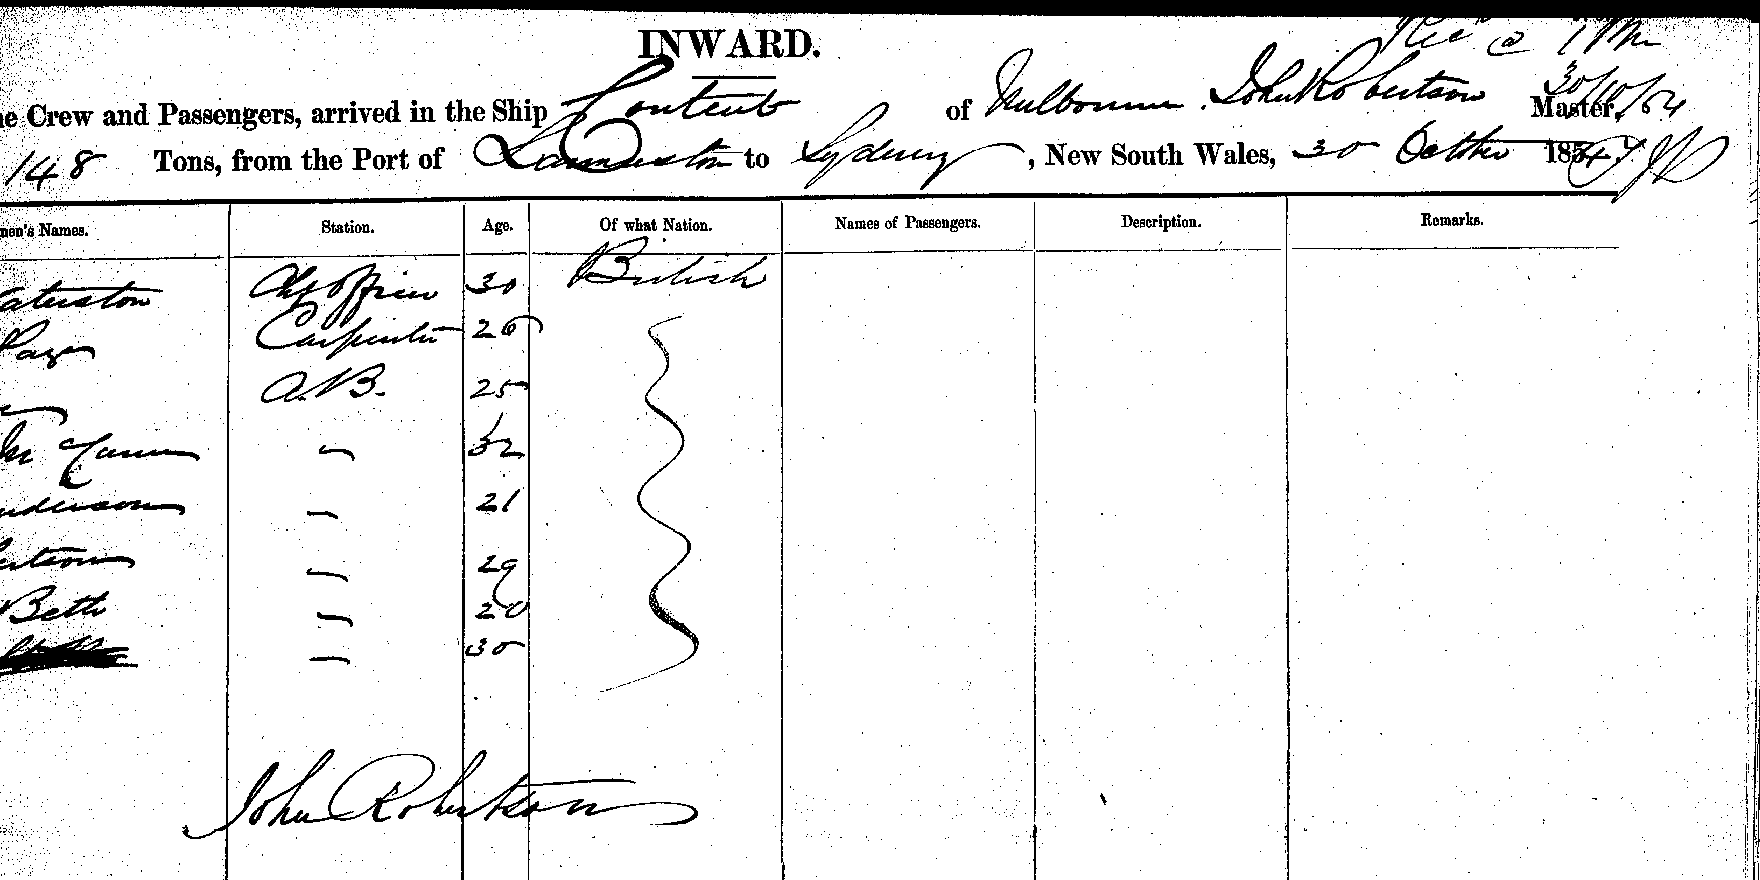 INWARD.
Crew and Passengers, arrived in the Ship of Melbourne. John Robertson Master, 30/10/54
148 Tons, from the Port of Launceston to Sydney, New South Wales, 30 October 1854
Names. Station. Age. Of what Nation. Names of Passengers. Description. Remarks.
Chf Officer 30 British
Page Carpenter 26
A.B. 25
Mc 32
21
29
Betts 20
30
John Robertson